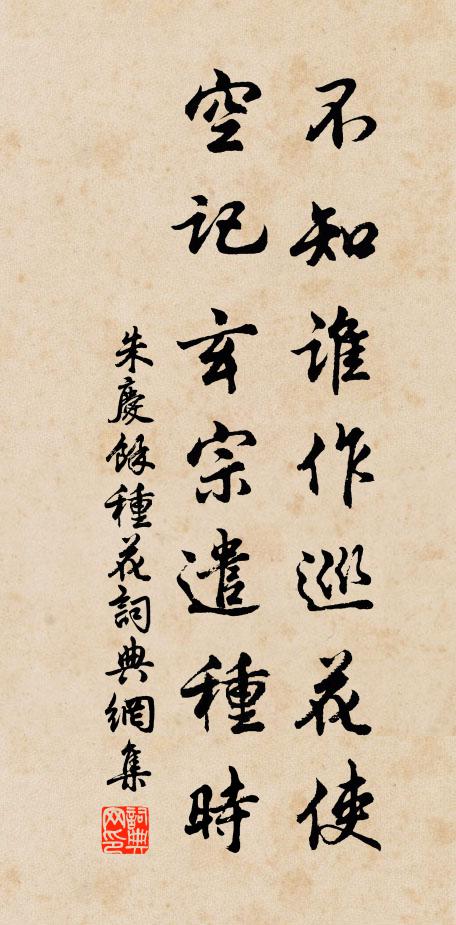 不知誰作巡花使
空記玄宗遣種時
朱慶餘種花詞典網集
詞典网印